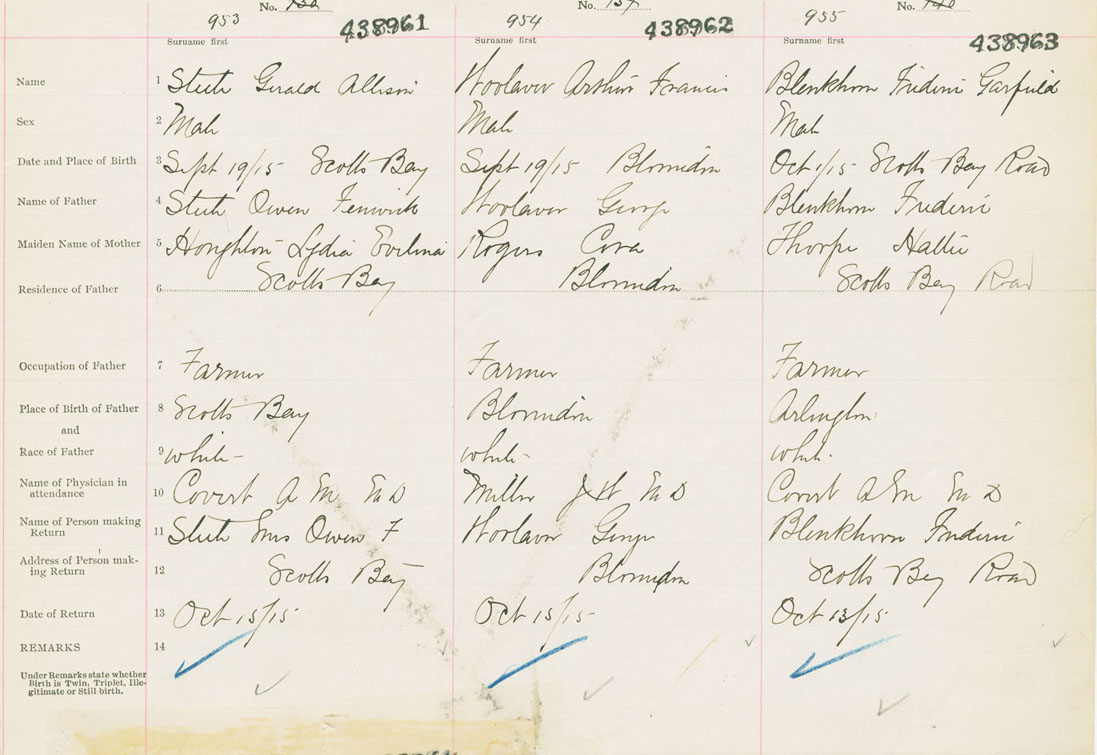 No. No. No.
953 954 955
438961 438962 438963
Surname first Surname first Surname first
Name 1 Steele Gerald Allison Woolaver Arthur Francis Blenkhorn Frederic Garfield
Sex 2 Male Male Male
Date and Place of Birth 3 Sept 19/15 Scotts Bay Sept 19/15 Blomidon Oct 1/15 Scotts Bay Road
Name of Father 4 Steele Owen Fenwick Woolaver George Blenkhorn Frederic
Maiden Name of Mother 5 Houghton Lydia Rogers Cora Thorpe Hattie
Residence of Father 6 Scotts Bay Blomidon Scotts Bay Road
Occupation of Father 7 Farmer Farmer Farmer
Place of Birth of Father 8 Scotts Bay Blomidon Arlington
and
Race of Father 9 white - white - white.
Name of Physician in
attendance 10 Covert A M M D Miller J W M D Covert A M M D
Name of Person making
Return 11 Steele Mrs Owen F Woolaver George Blenkhorn Frederic
Address of Person mak-
ing Return 12 Scotts Bay Blomidon Scotts Bay Road
Date of Return 13 Oct 15/15 Oct 15/15 Oct 13/15
REMARKS 14
Under Remarks state whether
Birth is Twin, Triplet, Ille-
gitimate or Still-birth.